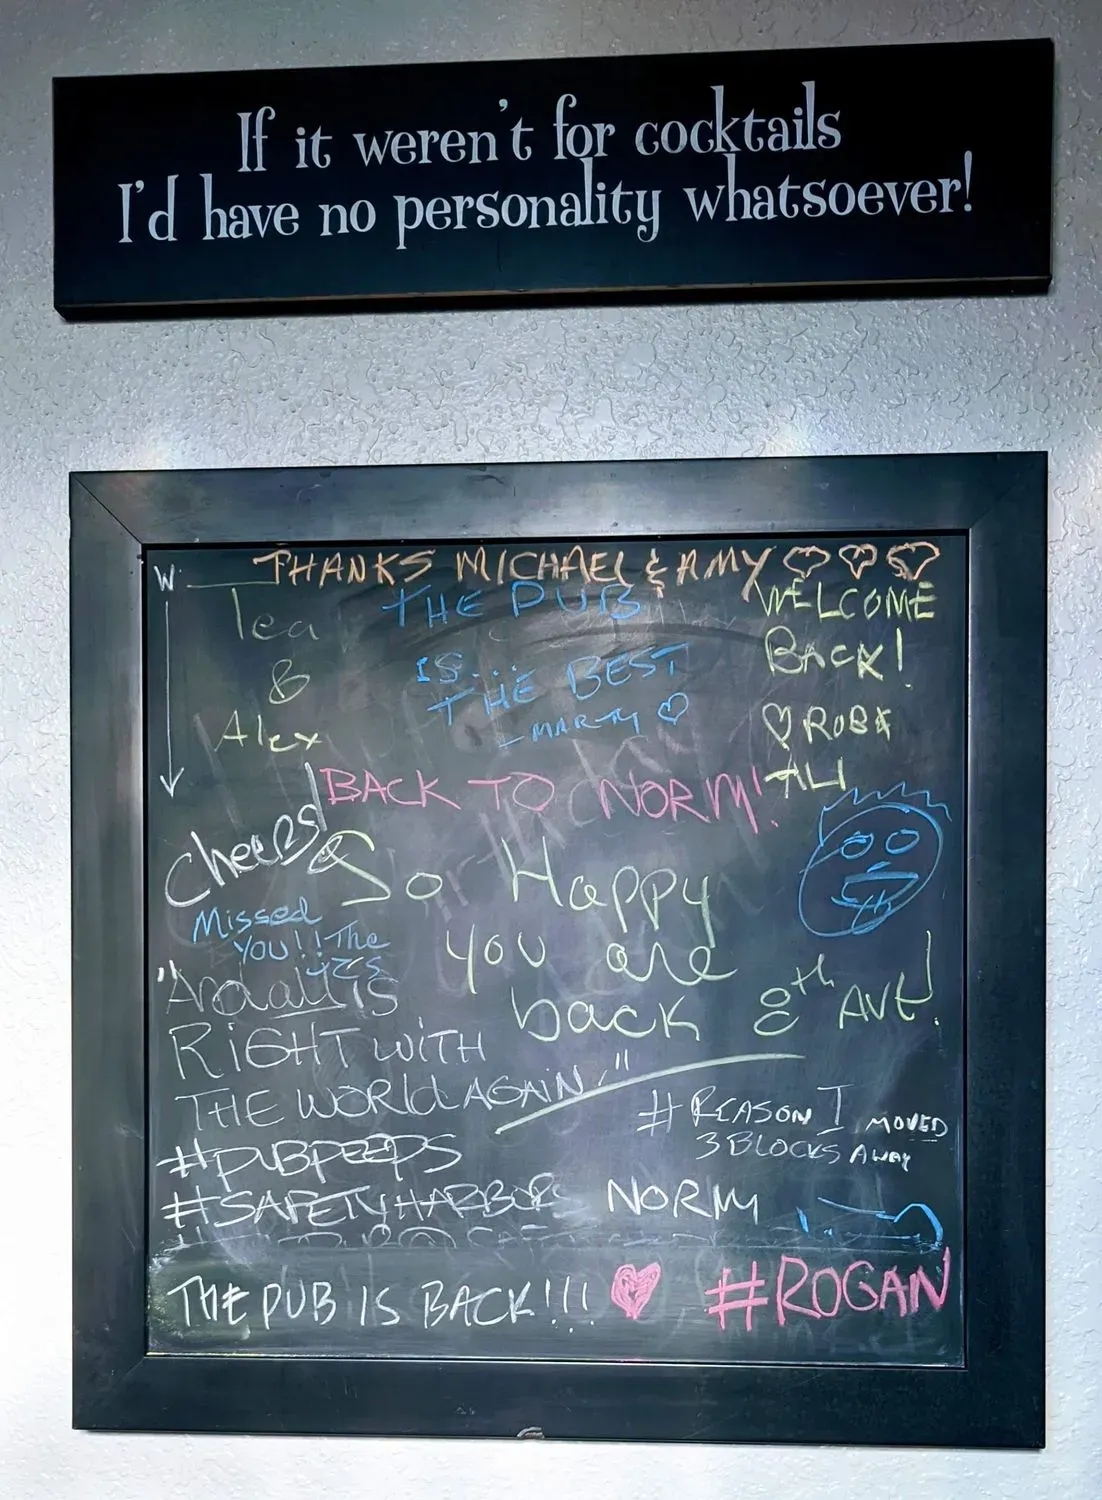 If it weren't for cocktails
I'd have no personality whatsoever!
THANKS MICHAEL & AMY
W
Tea
&
Alex
THE PUB
IS...
THE BEST
- MARTY
WELCOME
BACK!
ROB &
ALI
BACK TO NORM!
Cheers!
So Happy
you are
back 8th AVE!
Missed
YOU!! The
"And all is
RIGHT WITH
THE WORLD AGAIN."
#REASON I MOVED
3 BLOCKS AWAY
#PUBPEEPS
#SAFETYHARBOR
NORM
THE PUB IS BACK!!!
#ROGAN